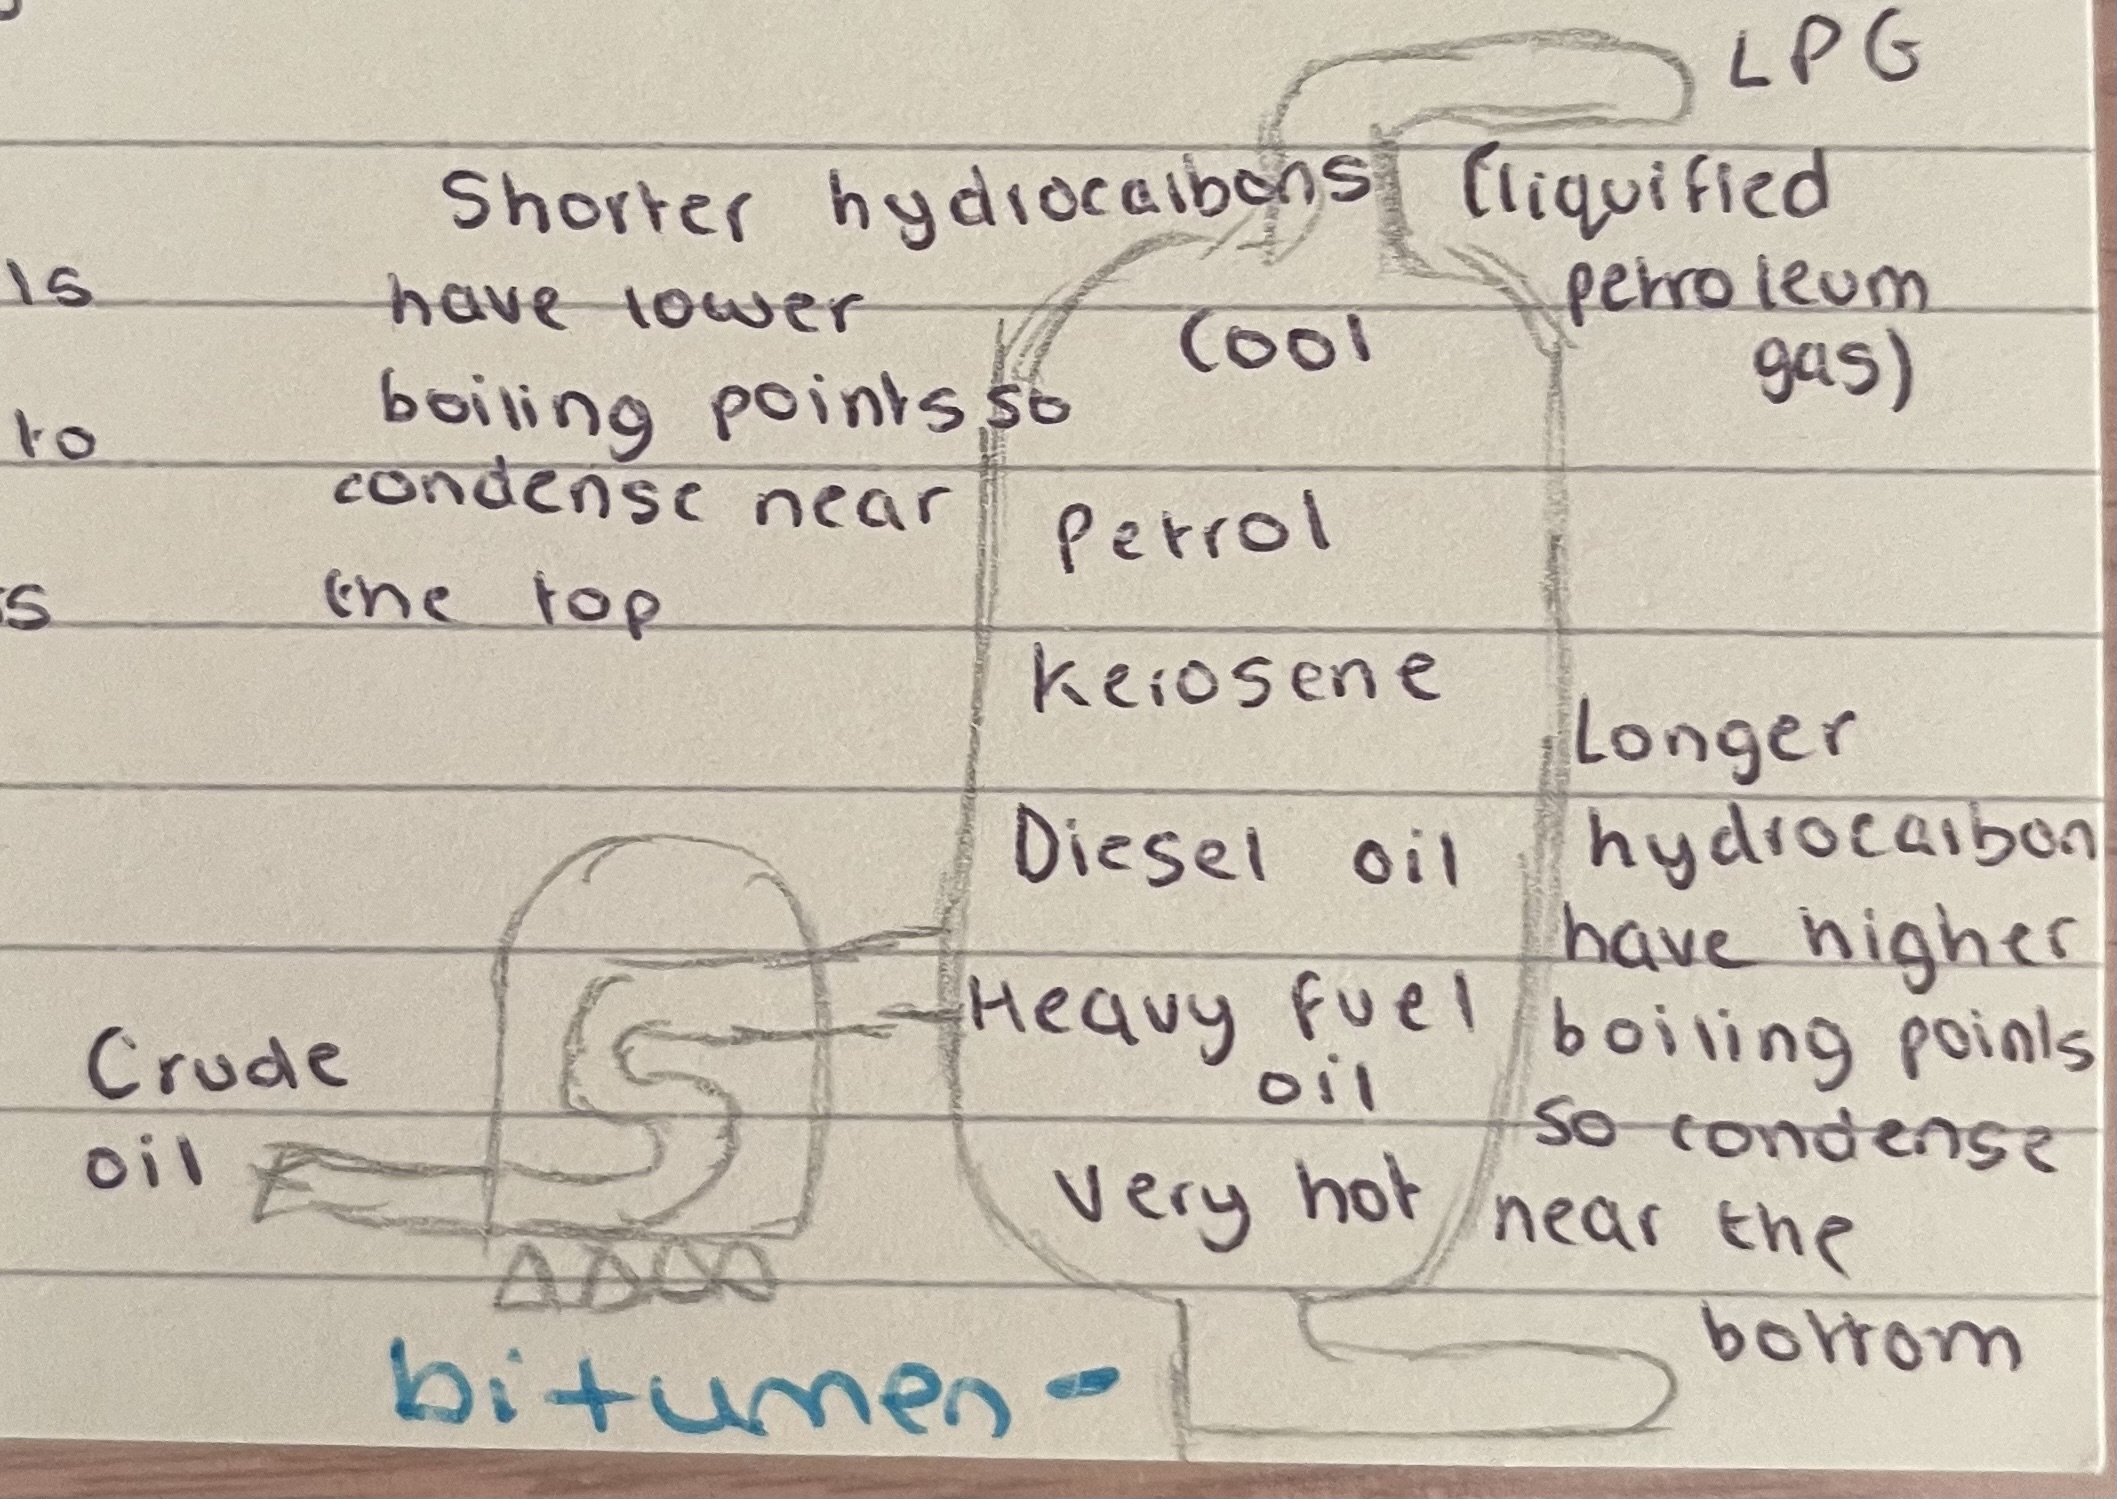 LPG
(liquified
petroleum
gas)
Shorter hydrocarbons
have lower
boiling points so
condense near
the top
is
to
s
Cool
Petrol
Kerosene
Diesel oil
Heavy fuel
oil
Very hot
Longer
hydrocarbon
have higher
boiling points
so condense
near the
bottom
Crude
oil
bitumen -